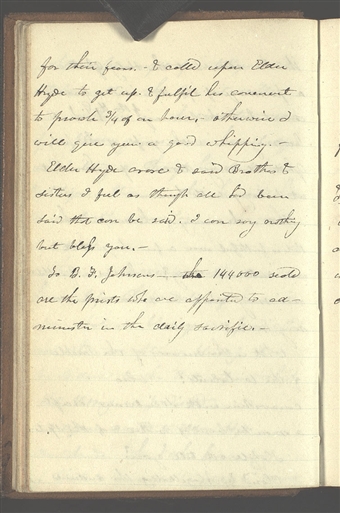 for their fears. - & called upon Elder
Hyde to get up. & fulfil his covenant
to preach 3/4 of an hour, - otherwise I
will give you a good whipping. -
Elder Hyde arose & said Brothers &
sisters I feel as though all had been
said that can be said. I can say nothing
but bless you. -
To B. F. Johnsons - the 144000 sealed
are the priests who are appointed to ad-
minister in the daily sacrifice. -